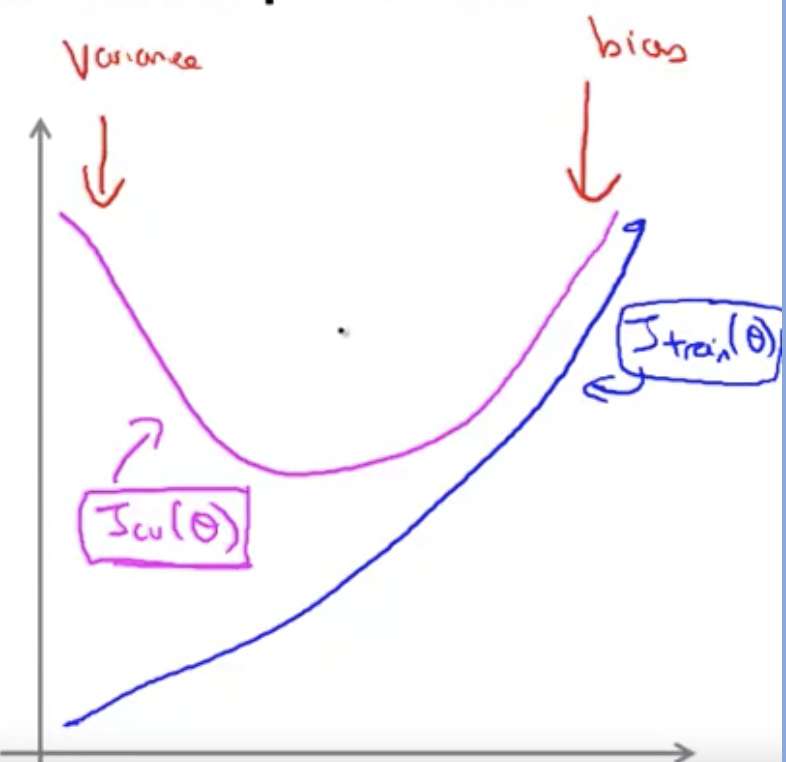 Variance
bias
J train (θ)
J cv (θ)